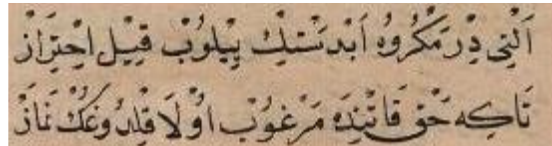 اَلْتِى دِرْ مَكْرُوهُ اَبْدَسْتِكْ بِيلُوبْ قِيلْ اِحْتِرَازْ
تَاكِه حَقْ قَاتِنْدَه مَرْغُوبْ اُولَا قِلْدُوغُكْ نَمَازْ